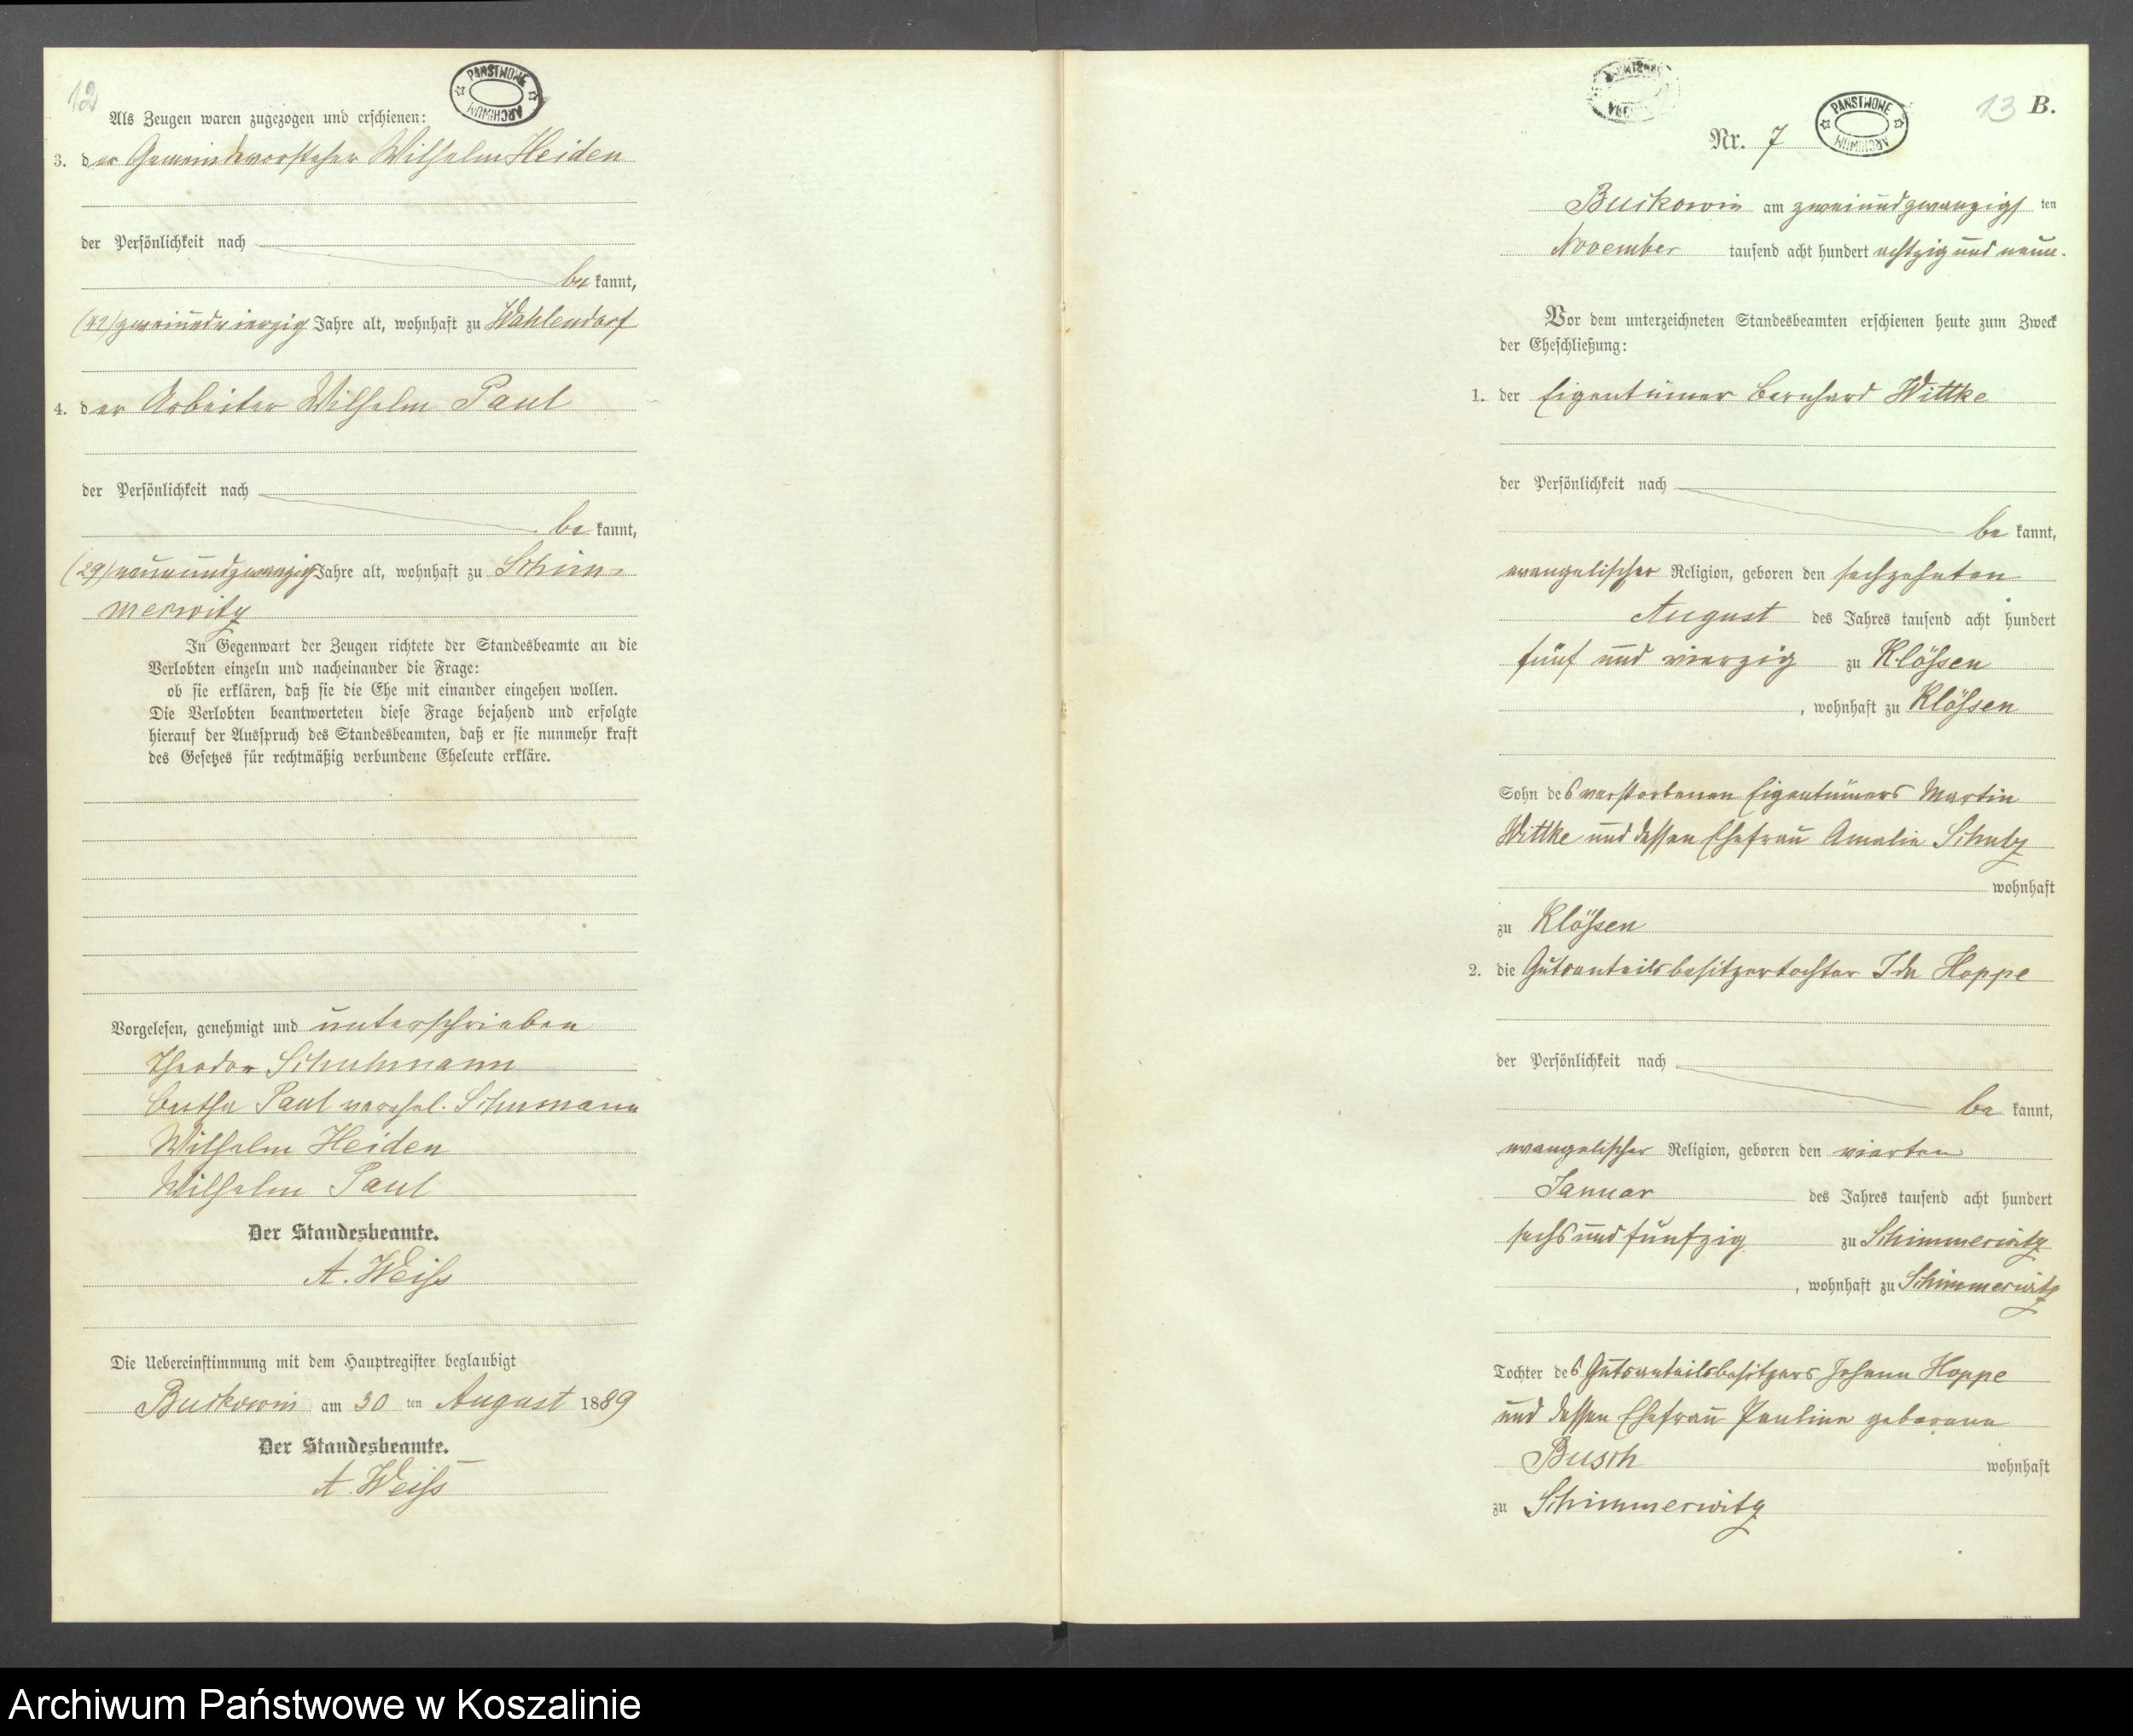 12
PAŃSTWOWE ARCHIWUM
Als Zeugen waren zugezogen und erschienen:
3. der Gemeindevorsteher Wilhelm Heiden
der Persönlichkeit nach
be kannt,
(42) zweiundvierzig Jahre alt, wohnhaft zu Wahlendorf
4. der Arbeiter Wilhelm Paul
der Persönlichkeit nach
be kannt,
(29) neunundzwanzig Jahre alt, wohnhaft zu Schim-
merwitz
In Gegenwart der Zeugen richtete der Standesbeamte an die
Verlobten einzeln und nacheinander die Frage:
ob sie erklären, daß sie die Ehe mit einander eingehen wollen.
Die Verlobten beantworteten diese Frage bejahend und erfolgte
hierauf der Ausspruch des Standesbeamten, daß er sie nunmehr kraft
des Gesetzes für rechtmäßig verbundene Eheleute erkläre.
Vorgelesen, genehmigt und unterschrieben
Theodor Schuhmann
Paul verehel. Schumann
Wilhelm Heiden
Wilhelm Paul
Der Standesbeamte.
A. Weiß
Die Uebereinstimmung mit dem Hauptregister beglaubigt
Buckowin am 30 ten August 1889
Der Standesbeamte.
A. Weiß
13 B.
PAŃSTWOWE ARCHIWUM
Nr. 7
Buckowin am zweiundzwanzigs ten
November tausend acht hundert achtzig und neun.
Vor dem unterzeichneten Standesbeamten erschienen heute zum Zweck
der Eheschließung:
1. der Eigentümer Bernhard Wittke
der Persönlichkeit nach
be kannt,
evangelischer Religion, geboren den sechzehnten
August des Jahres tausend acht hundert
fünf und vierzig zu Klößen
, wohnhaft zu Klößen
Sohn des verstorbenen Eigentümers Martin
Wittke und dessen Ehefrau Amalie Schulz
wohnhaft
zu Klößen
2. die Gutsanteilsbesitzertochter Ida Hoppe
der Persönlichkeit nach
be kannt,
evangelischer Religion, geboren den vierten
Januar des Jahres tausend acht hundert
sechs und fünfzig zu Schimmerwitz
, wohnhaft zu Schimmerwitz
Tochter des Gutsanteilsbesitzers Johann Hoppe
und dessen Ehefrau Pauline geborene
Busch wohnhaft
zu Schimmerwitz
Archiwum Państwowe w Koszalinie